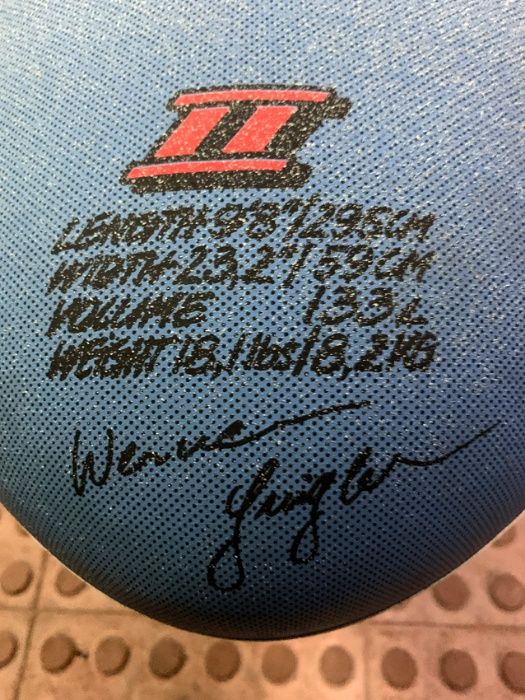 II
LENGTH 9'8"/296CM
WIDTH 23,2"/59CM
VOLUME 133L
WEIGHT 18,1lbs/8,2KG
Werner
Gnigler